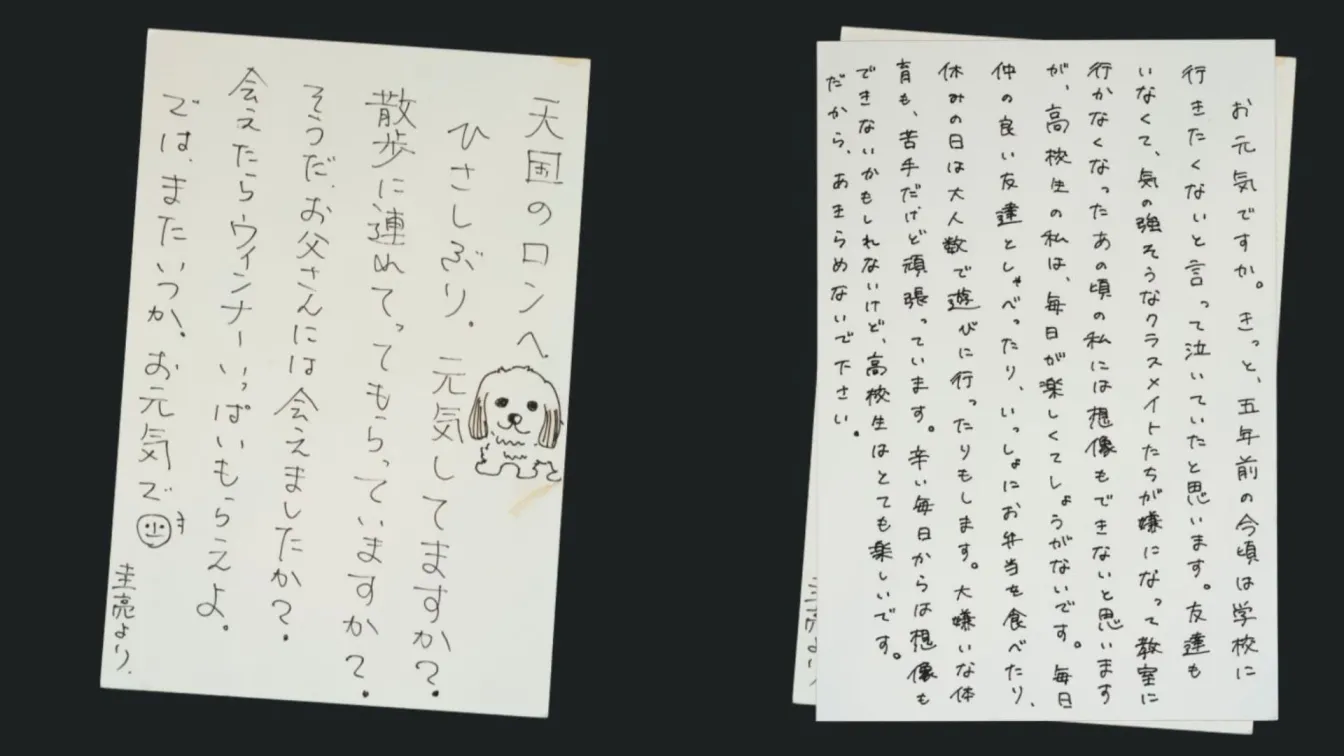 天国のロンへ
ひさしぶり。元気してますか?
散歩に連れてってもらっていますか?
そうだ、お父さんには会えましたか?
会えたらウィンナーいっぱいもらえよ。
では、またいつか。お元気で
圭亮より
お元気ですか。きっと、五年前の今頃は学校に
行きたくないと言って泣いていたと思います。友達も
いなくて、気の強そうなクラスメイトたちが嫌になって教室に
行かなくなったあの頃の私には想像もできないと思います
が、高校生の私は、毎日が楽しくてしょうがないです。毎日
仲の良い友達としゃべったり、いっしょにお弁当を食べたり、
休みの日は大人数で遊びに行ったりもします。大嫌いな体
育も、苦手だけど頑張っています。辛い毎日からは想像も
できないかもしれないけど、高校生はとても楽しいです。
だから、あきらめないで下さい。